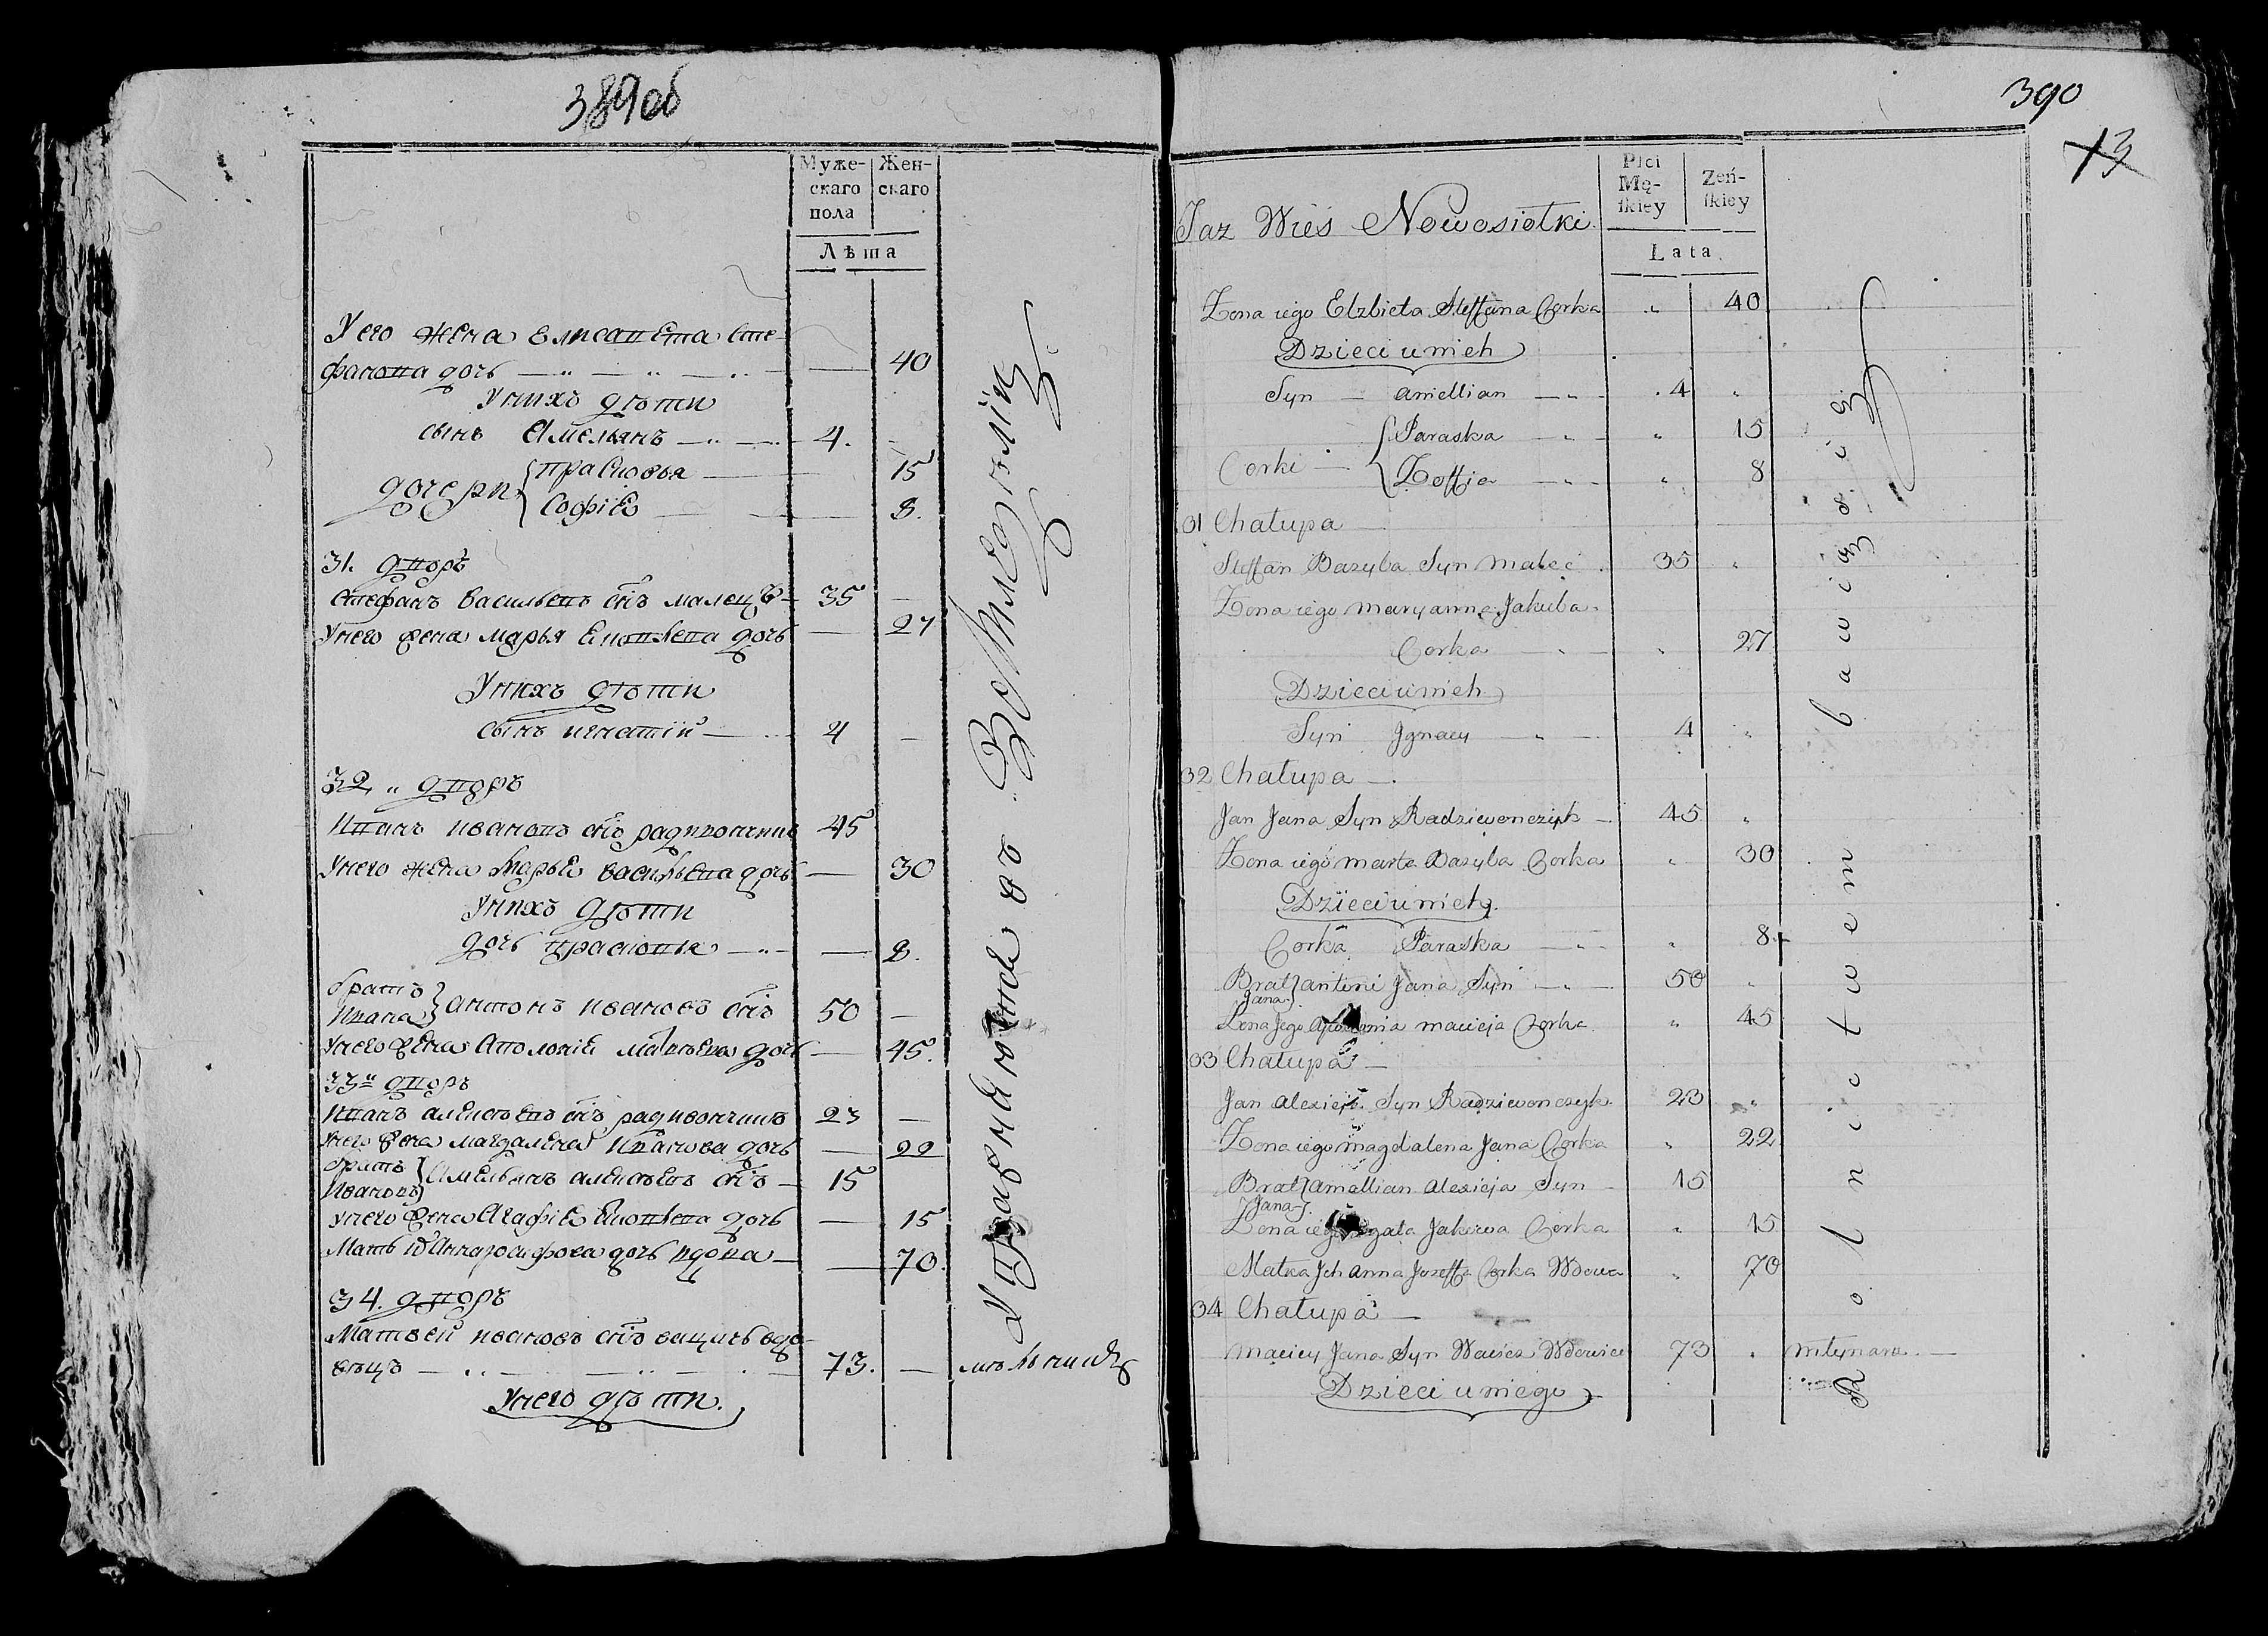 389об
Муже-
скаго
пола
Жен-
скаго
Лѣта
У него жена елисавета сте-
фанова дочь — „ — „ — „ — 40
У нихъ дѣти
сынъ Амельянъ — „ — 4. —
дочери { прасковья — 15
Софiя — 8.
31. дворъ
Стефанъ васильевъ снъ малецъ — 35 —
У него жена марья яковлева дочь — 27
У нихъ дѣти
сынъ игнатiй — 4 —
32 „ дворъ
Иванъ ивановъ снъ радивончикъ 45
У него жена Марья васильева дочь — 30
У нихъ дѣти
дочь прасковья — „ — 8.
братъ
Ивана } антонъ ивановъ снъ 50 —
У него жена Аполонiя матвѣева дочь — 45.
33й дворъ
Иванъ алексѣевъ снъ радивончикъ 23 —
У него жена магдалена Иванова дочь — 22
братъ
Ивановъ } Амельянъ алексѣевъ снъ — 15
У него жена Агафiя яковлева дочь — 15
Мать их Анна осифова дочь вдова — 70.
34. дворъ
Матвей ивановъ снъ вацичь вдо-
вецъ — „ — „ — 73. — мѣльникъ
У него дѣти.
Упражняются въ Земледѣлiи
390
13
Taz Wieś Nowosiołki
Płci
Mę-
skiey
Żeń-
skiey
Lata
Zona iego Elzbieta Steffana Corka „ 40
Dzieci u nich
Syn — amellian — „ — 4 „
Corki — { Paraska — „ — „ 15
Zoffia — „ — „ 8
31 Chałupa —
Steffan Bazyla Syn Malec . 35 „
Zona iego maryanna Jakuba
Corka — „ — „ 27
Dzieci u nich
Syn Jgnacy — „ — 4 „
32 Chałupa —.
Jan Jana Syn Radziewonczyk — 45 „
Zona iego marta Bazyla Corka „ 30
Dzieci u nich.
Corka Paraska — „ — „ 8
Brat
Jana } antoni Jana Syn — „ — 50 „
Zona Jego macieja Corka „ 45
33 Chałupa —
Jan alexieja Syn Radziewonczyk 23 „
Zona iego magdalena Jana Corka „ 22
Brat
Jana } amellian alexieja Syn — 15
Zona iego agata Jakuba Corka „ 15
Matka Jch anna Jozeffa Corka Wdowa „ 70
34 Chałupa —
maciey Jana Syn Wacicz Wdowiec 73 „ młynarz —
Dzieci u niego
Rolnictwem bawią się